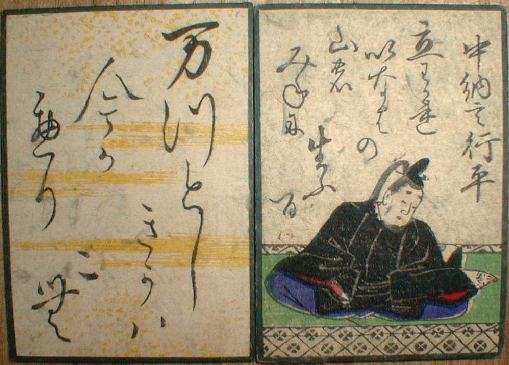 中納言行平
立わかれ
いなはの
山の
みねに
生ふ
る
万川とし
きかハ
今か
遍り
こ無